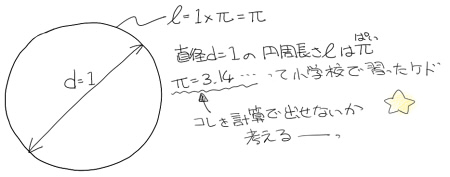 l=1×π=π
d=1
直径d=1の円周長さlはπ
ぱい
π=3.14…って小学校で習ったケド
コレを計算で出せないか
考えるーっ